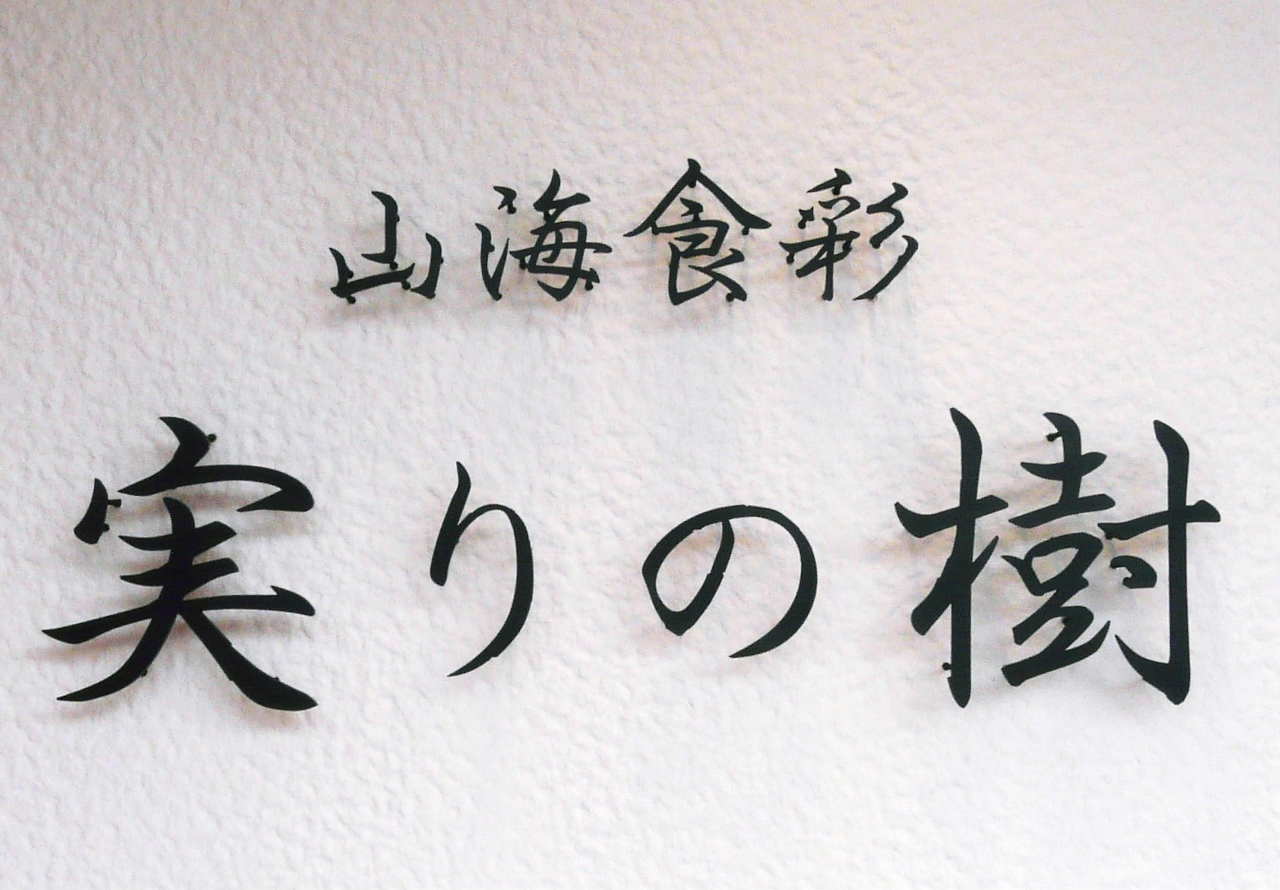 山海食彩
実りの樹